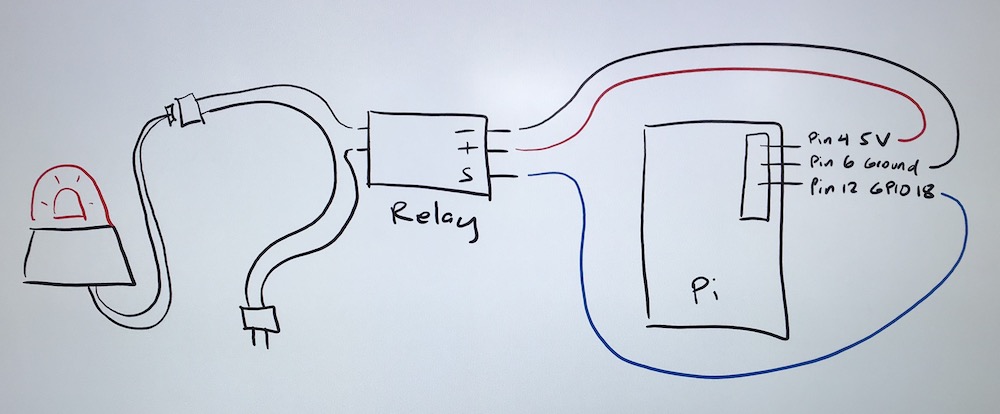 −
+
S
Relay
Pin 4 5V
Pin 6 Ground
Pin 12 GPIO 18
Pi